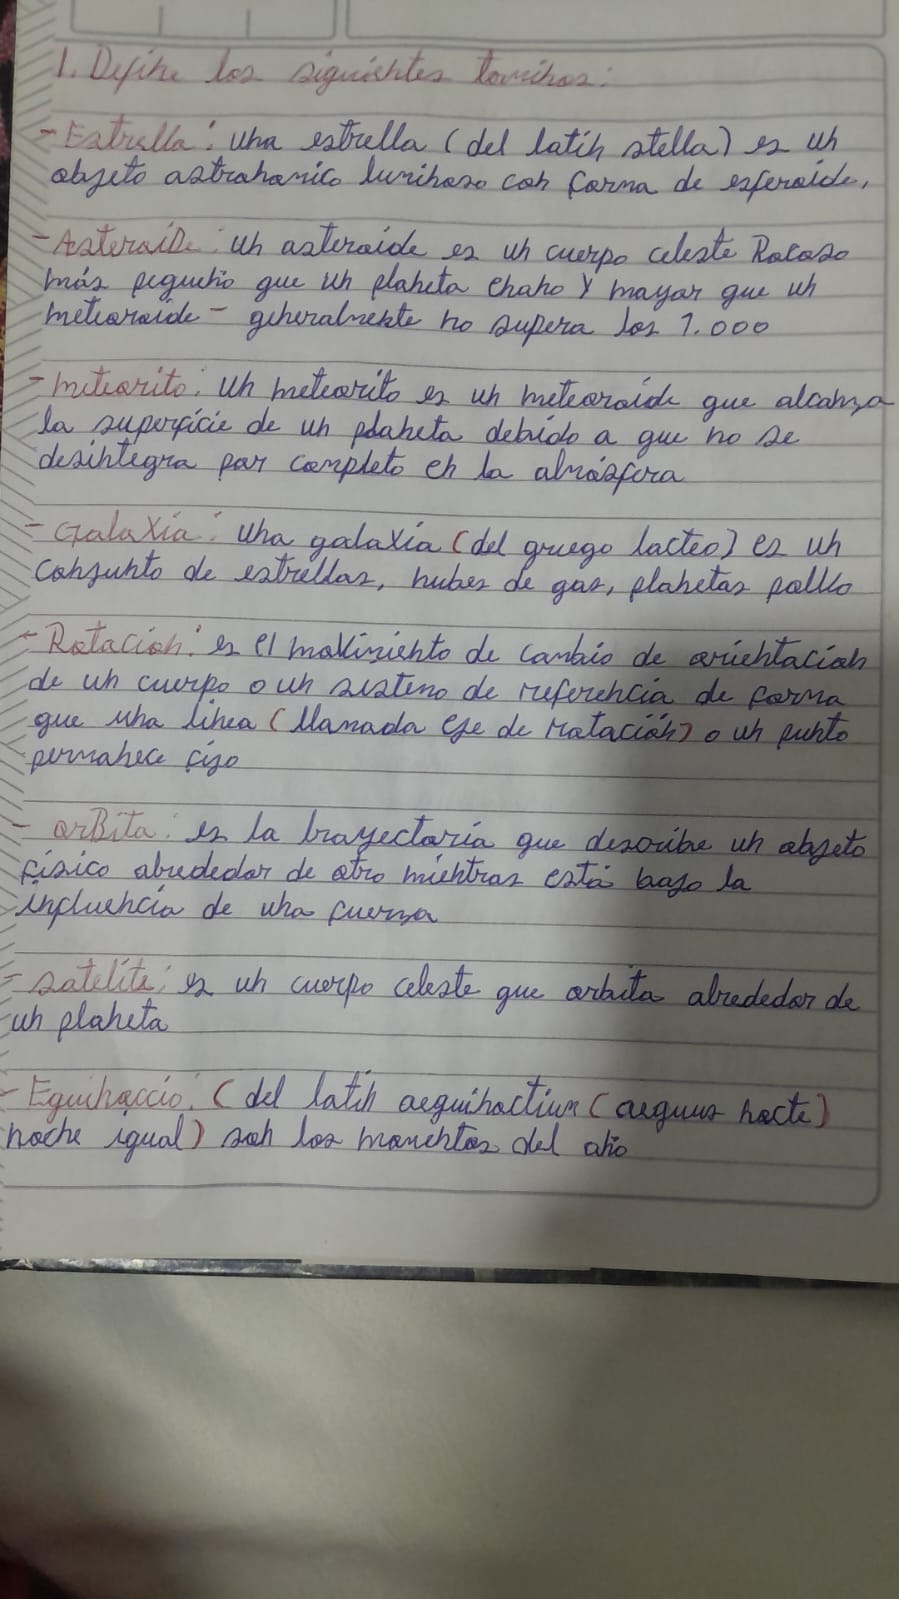 1. Define los siguientes terminos:
- Estrella: una estrella (del latin stella) es un
objeto astronomico luminoso con forma de esferoide,
- Asteroide: un asteroide es un cuerpo celeste Rocoso
más pequeño que un planeta enano y mayor que un
meteoroide - generalmente no supera los 1.000
- meteorito: Un meteorito es un meteoroide que alcanza
la superficie de un planeta debido a que no se
desintegra por completo en la atmósfera
- Galaxia: una galaxia (del griego lacteo) es un
conjunto de estrellas, nubes de gas, planetas polvo
- Rotación: es el movimiento de cambio de orientación
de un cuerpo o un sisteno de referencia de forma
que una linea (llamada eje de rotación) o un punto
permanece fijo
- orBita: es la trayectoria que describe un objeto
físico alrededor de otro mientras está bajo la
influencia de una fuerza
- satelite: es un cuerpo celeste que orbita alrededor de
un planeta
- Equinoccio: (del latin aequinoctium (aequus nocte)
noche igual) son los momentos del año